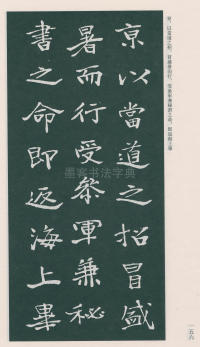 京以當道之招冒盛
暑而行受參軍兼秘
書之命即返海上畢
墨客书法字典
一五六